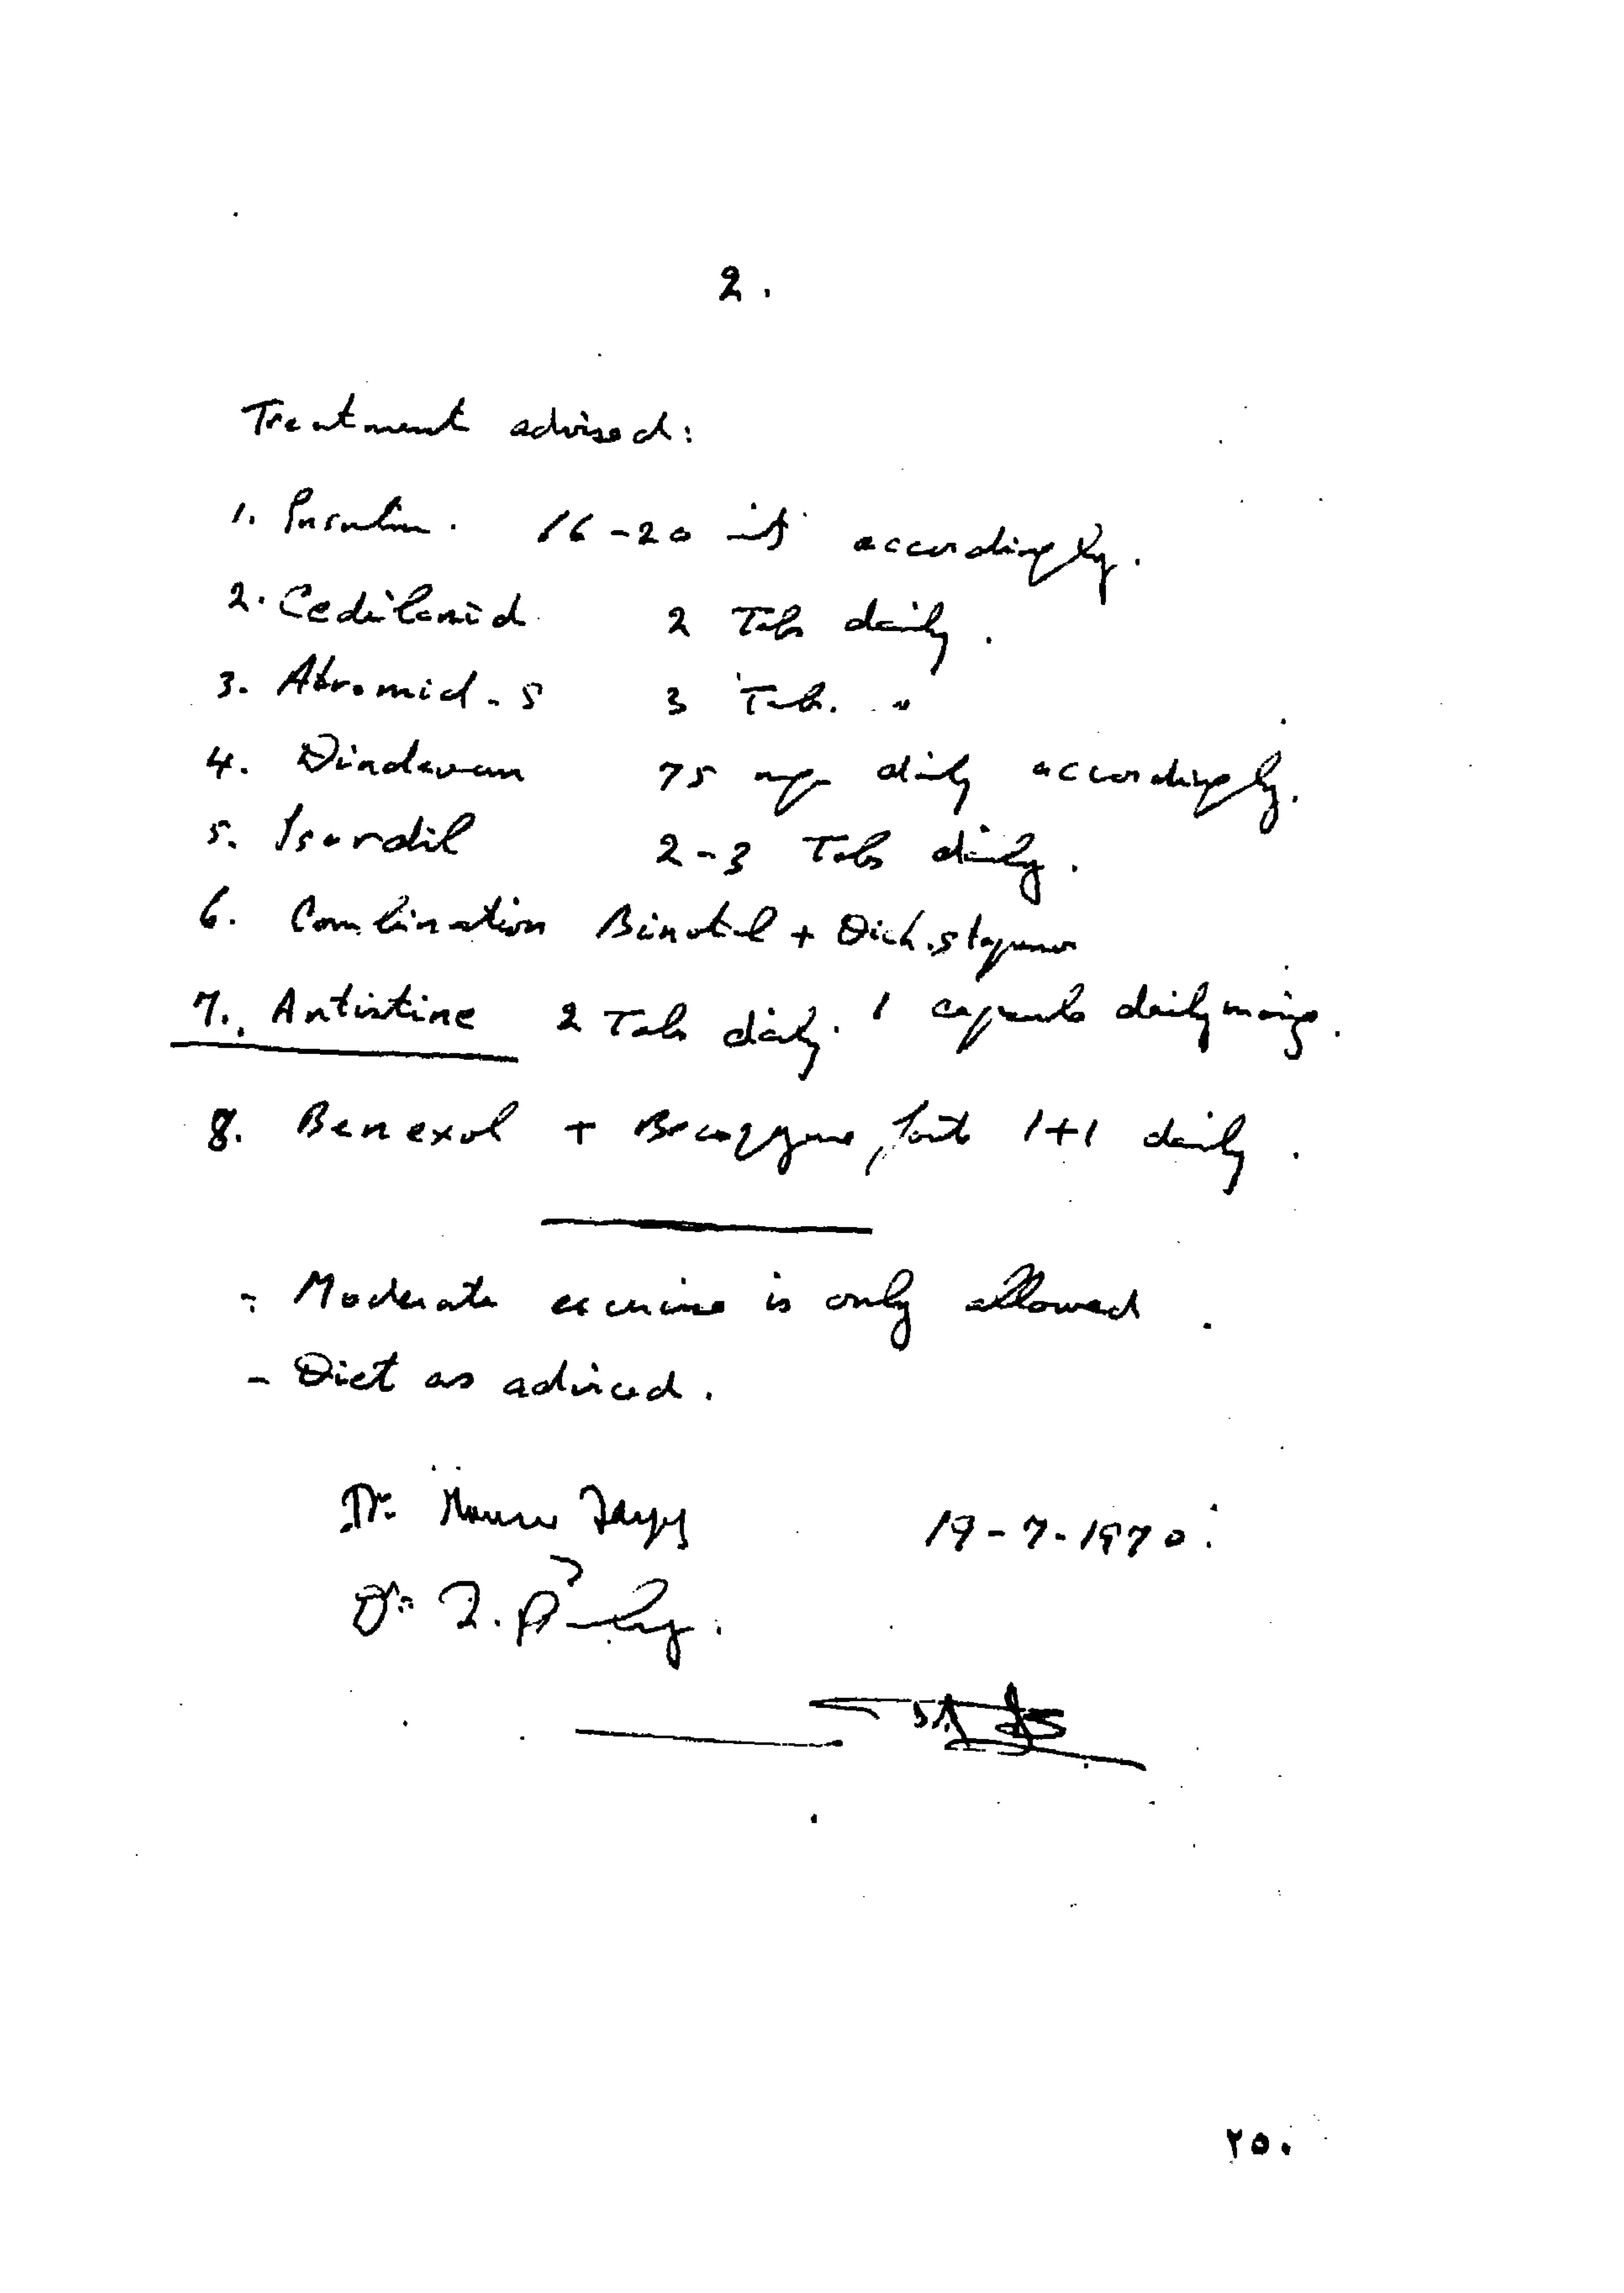 2.
Treatment advised:
1. Insulin. 16-20 accordingly.
2. Cedilanid 2 Tabs daily.
3. Atromid-S 3 Tab. "
4. Dindevan 75 mg daily accordingly.
5. Isordil 2-3 Tabs daily.
6. Combination Binotal + Dichstapenor
7. Antistine 2 Tabs daily. 1 capsule daily
8. Benexol + Becozyme forte 1+1 daily.
- Moderate exercise is only allowed.
- Diet as adviced.
Dr. 19-7-1970.
Dr.
٢٥٠